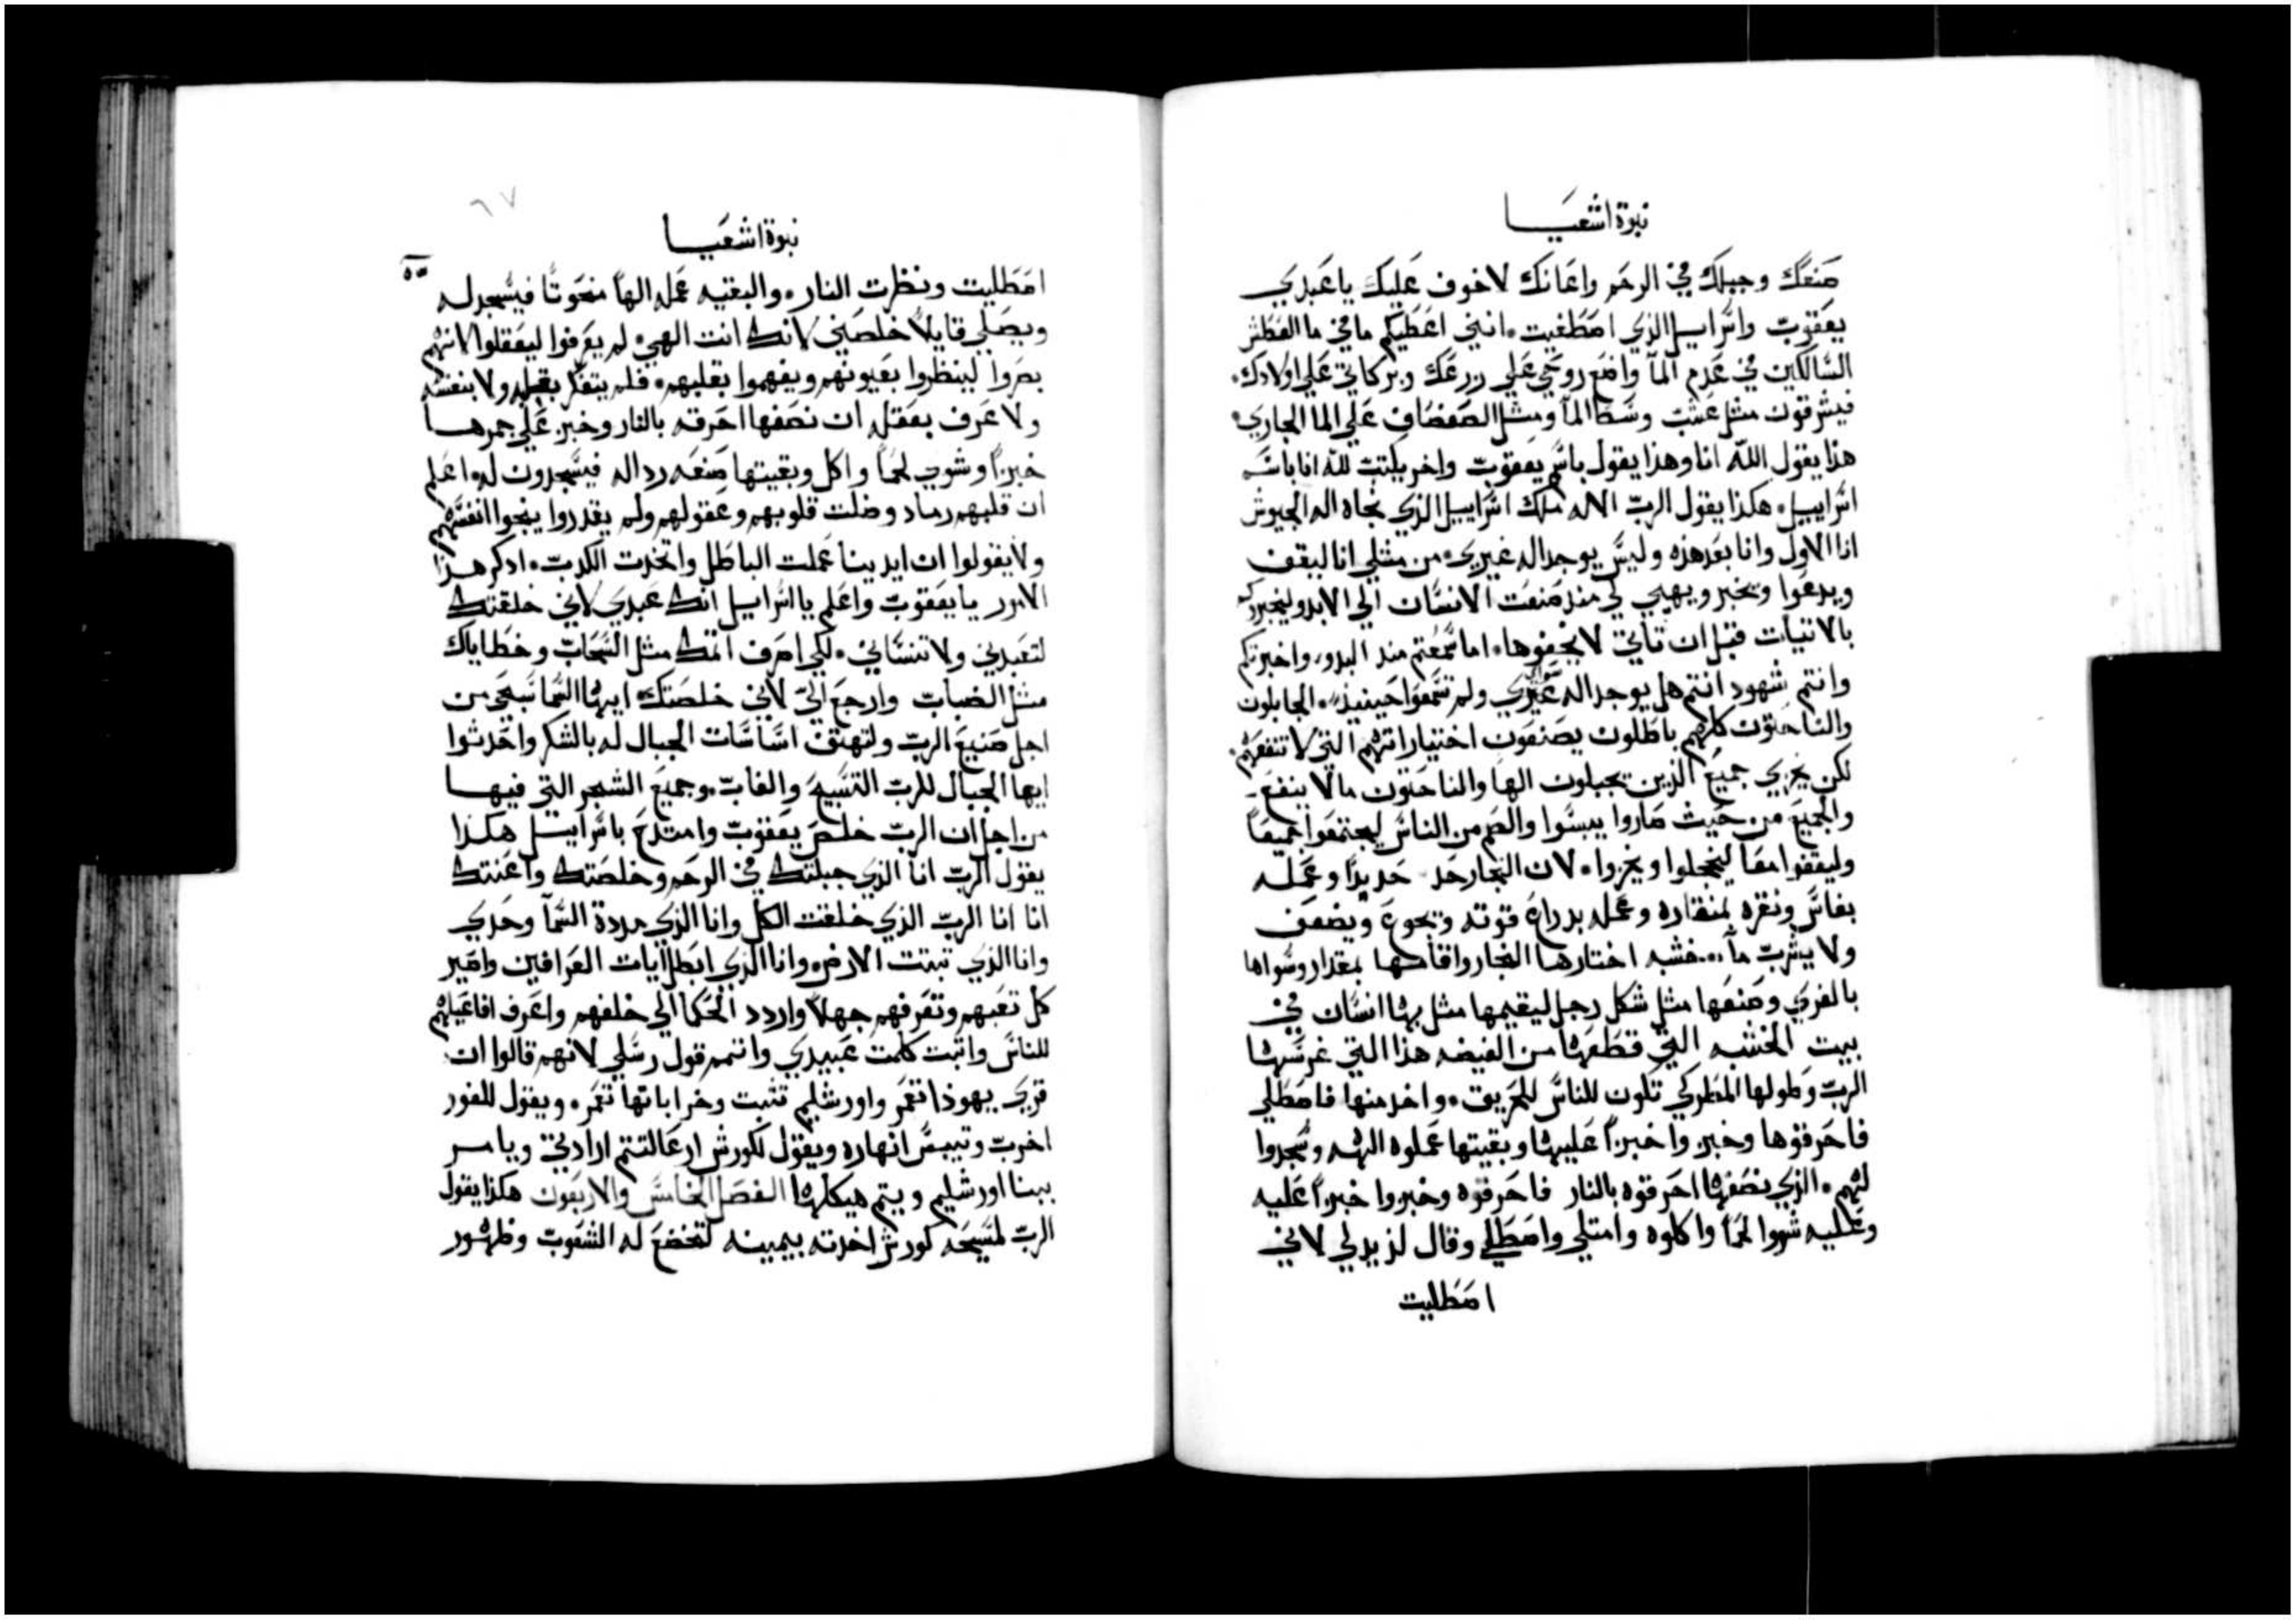 نبوة اشعيا
صنعك وجبلك في الرحم واعانك لا خوف عليك يا عبدي
يعقوب واسراييل الذي اصطفيت. انني اعطيكم ما في ما العطش
السالكين في عدم المآ واضع روحي علي زرعك وبركاتي علي اولادك.
فيشرقون مثل عشب وسط المآ ومثل الصفصاف علي الما الجاري.
هذا يقول الله انا وهذا يقول باسم يعقوب واخر يكتب لله انا باسم
اسراييل. هكذا يقول الرب الاله ملك اسراييل الذي نجاه اله الجيوش
انا الاول وانا بعد هذه وليس يوجد اله غيري. من مثلي انا ليقف
ويدعوا ويخبر ويهيي لي منذ صنعت الانسان الي الابد وليخبركم
بالاتيات قبل ان تاتي لا يخفوها. اما سمعتم منذ البدو، واخبرتكم
وانتم شهود انتم هل يوجد اله غيري ولم تسمعوا حينيذ. الجابلون
والناحتون كلهم باطلون يصنعون اختياراتهم التي لا تنفعهم.
لكن يخزي جميع الذين يجبلون الها والناحتون ما لا ينفع.
والجميع من حيث صاروا يبسوا والصم من الناس ليجتمعوا جميعاً
وليقفوا معا ليخجلوا ويخزوا. لان النجار حد حديداً وعمله
بفاس ونقره بمنقاره وعمله بدراع قوته ويجوع ويضعف
ولا يشرب مآ. خشبه اختارها النجار واقامها بمقدار وسواها
بالغري وصنعها مثل شكل رجل ليقيمها مثل بها انسان في
بيت الخشبه التي قطعها من الغيضه هذا التي غرسها
الرب وطولها المطر لكي تكون للناس للحريق. واخد منها فاصطلي
فاحرقوها وخبز واخبزاً عليها وبقيتها عملوه الهه وسجدوا
لهم. الذي نصفها احرقوه بالنار فاحرقوه وخبزوا خبزاً عليه
وعليه شووا لحماً واكلوه وامتلي واصطلي وقال لذيد لي لاني
اصطليت
٦٧
نبوة اشعيا
٥٥
اصطليت ونظرت النار. والبقيه عمله الهاً منحوتاً فيسجد له
ويصلي قايلاً خلصني لانك انت الهي. لم يعرفوا ليعقلوا لانهم
بصروا لينظروا بعيونهم ويفهموا بقلبهم. فلم يتفكر بقلبه ولا بنفسه
ولا عرف بعقله ان نصفها احرقه بالنار وخبز علي جمرها
خبزاً وشوي لحماً واكل وبقيتها صنعه رد اله فيسجدون له. اعلم
ان قلبهم رماد وضلت قلوبهم وعقولهم ولم يقدروا ينجوا انفسهم
ولا يقولوا ان ايدينا عملت الباطل واتخدت الكدب. ادكر هذا
الامور يا يعقوب واعلم يا اسراييل انك عبدي لاني خلقتك
لتعبدني ولا تنساني. لكي اصرف اتمك مثل السحاب وخطاياك
مثل الضباب وارجع الي لاني خلصتك ايها السما سبحي من
اجل صنيع الرب ولتهتف اساسات الجبال له بالشكر واحدثوا
ايها الجبال للرب التسبيح والغاب وجميع الشجر التي فيها
من اجل ان الرب خلص يعقوب وامتدح باسراييل هكذا
يقول الرب انا الذي جبلتك في الرحم وخلصتك واعنتك
انا انا الرب الذي خلقت الكل وانا الذي مددة السمآ وحدي
وانا الذي تبتت الارض وانا الذي ابطل ايات العرافين واصير
كل تعبهم وتعرفهم جهلاً واردد الحكما الي خلفهم واعرف افاعيلهم
للناس واتبت كلمت عبيدي واتمم قول رسلي لانهم قالوا ان
قري يهوذا تعمر واورشليم تثبت وخراباتها تعمر. ويقول للغور
اخرب وتيبس انهاره ويقول لكورش ارعا لتتم ارادتي ويامر
ببنا اورشليم ويتم هيكلها الفصل الخامس والاربعون هكذا يقول
الرب لمسيحه كورش اخدته بيمينه لتخضع له الشعوب وظهور